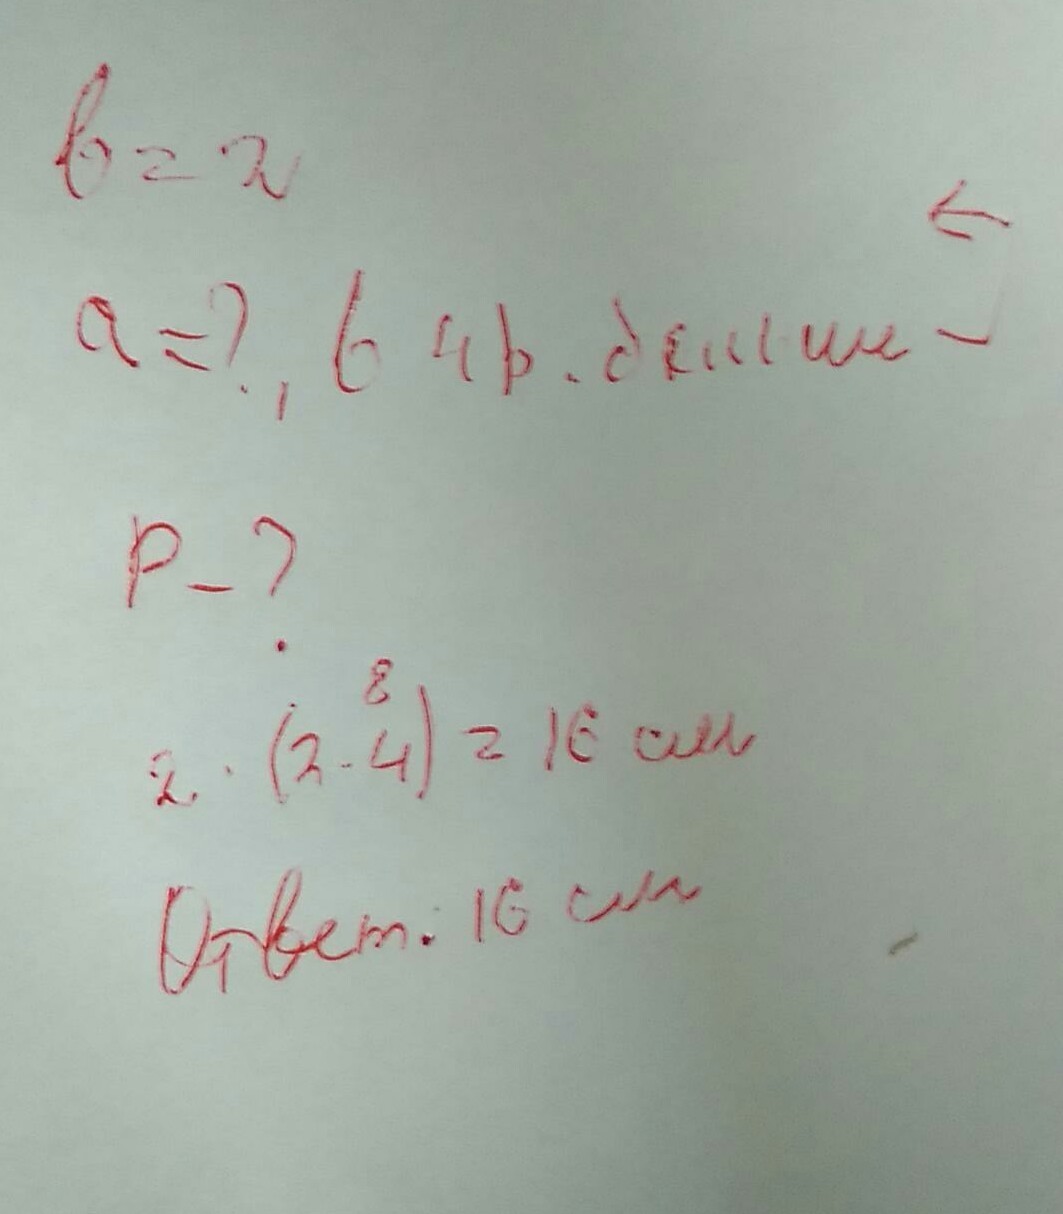 b = 2
a = ?, в 4 р. длинше
P - ?
8
2 · (2 · 4) = 16 см
Ответ: 16 см